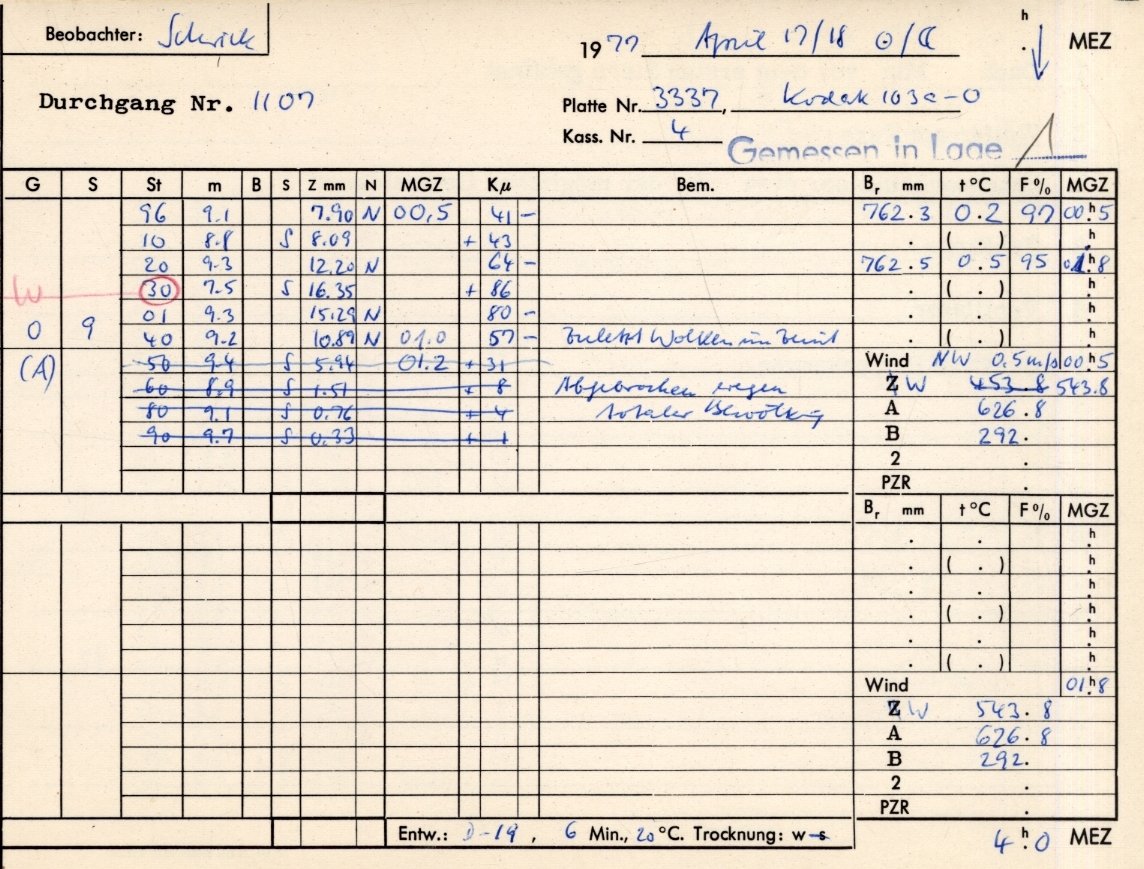 Beobachter: Schrick
1977 April 17/18 ☉/☾ h . MEZ
Durchgang Nr. 1107
Platte Nr. 3337, Kodak 103a-O
Kass. Nr. 4
Gemessen in Lage 1
G S St m B S Z mm N MGZ Kμ Bem. Br mm t °C F % MGZ
96 9.1 7.90 N 00,5 41 - 762.3 0.2 97 00h.5
10 8.8 S 8.09 + 43 . ( . ) h.
20 9.3 12.20 N 64 - 762.5 0.5 95 01h.8
W 30 7.5 S 16.35 + 86 . ( . ) h.
01 9.3 15.29 N 80 - . . h.
0 9 40 9.2 10.89 N 01.0 57 - zuletzt Wolken im Zenit . ( . ) h.
(A) 50 9.4 S 5.94 01.2 + 31 Wind NW 0.5 m/s 00h.5
60 8.9 S 1.51 + 8 Abgebrochen wegen Z W 453.8 543.8
80 9.1 S 0.76 + 4 totaler Bewölkg A 626.8
90 9.7 S 0.33 + 1 B 292.
2 .
PZR .
Br mm t °C F % MGZ
. . h.
. ( . ) h.
. . h.
. ( . ) h.
. . h.
. ( . ) h.
Wind 01h.8
Z W 543.8
A 626.8
B 292.
2 .
PZR .
Entw.: D-19, 6 Min., 20 °C. Trocknung: w-s
4h.0 MEZ